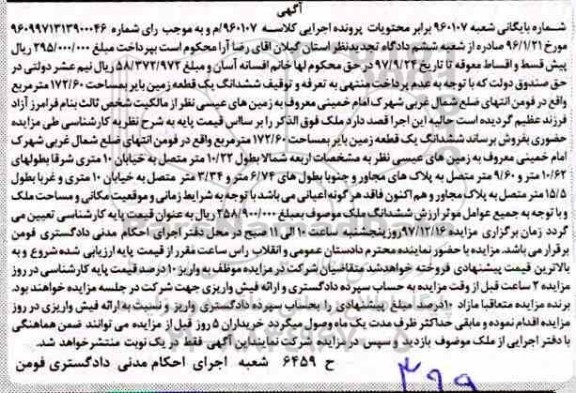 آگهی
شماره بایگانی شعبه ۹۶۰۱۰۷ برابر محتویات پرونده اجرایی کلاسه ۹۶۰۱۰۷/م و به موجب رای شماره ۹۶۰۹۹۷۱۳۱۳۹۰۰۰۴۶
مورخ ۹۶/۱/۲۱ صادره از شعبه ششم دادگاه تجدیدنظر استان گیلان آقای رضا آرا محکوم است بپرداخت مبلغ ۲۹۵/۰۰۰/۰۰۰ ریال
پیش قسط و اقساط معوقه تا تاریخ ۹۷/۹/۲۴ در حق محکوم لها خانم افسانه آسان و مبلغ ۵۸/۳۷۲/۹۷۲ ریال نیم عشر دولتی در
حق صندوق دولت که با توجه به عدم پرداخت منتهی به تعرفه و توقیف ششدانگ یک قطعه زمین بایر بمساحت ۱۷۲/۶۰ مترمربع
واقع در فومن انتهای ضلع شمال غربی شهرک امام خمینی معروف به زمین های عیسی نظر از مالکیت شخص ثالث بنام فرامرز آزاد
فرزند عظیم گردیده است حالیه این اجرا قصد دارد ملک فوق الذکر را بر سااس قیمت پایه به شرح نظریه کارشناسی طی مزایده
حضوری بفروش برساند ششدانگ یک قطعه زمین بایر بمساحت ۱۷۲/۶۰ مترمربع واقع در فومن انتهای ضلع شمال غربی شهرک
امام خمینی معروف به زمین های عیسی نظر به مشخصات اربعه شمالا بطول ۱۰/۲۲ متر متصل به خیابان ۱۰ متری شرقا بطولهای
۱۰/۶۲ متر و ۹/۶۰ متر متصل به پلاک مجاور و جنوبا بطول های ۶/۷۴ متر و ۳/۳۴ متر متصل به خیابان ۱۰ متری و غربا بطول
۱۵/۵ متر متصل به پلاک مجاور و هم اکنون فاقد هر گونه اعیانی می باشد با توجه به شرایط زمانی و موقعیت مکانی و مساحت ملک
و با توجه به جمیع عوامل موثر ارزش ششدانگ ملک موصوف بمبلغ ۲۵۸/۹۰۰/۰۰۰ ریال به عنوان قیمت پایه کارشناسی تعیین می
گردد زمان برگزاری مزایده ۹۷/۱۲/۱۶ روز پنجشنبه ساعت ۱۰ الی ۱۱ صبح در محل دفتر اجرای احکام مدنی دادگستری فومن
برقرار می باشد. مزایده با حضور نماینده محترم دادستان عمومی و انقلاب راس ساعت مقرر از قیمت پایه ارزیابی شده شروع و به
بالاترین قیمت پیشنهادی فروخته خواهد شد متقاضیان شرکت در مزایده موظف به واریز ۱۰ درصد قیمت پایه کارشناسی در روز
مزایده ۲ ساعت قبل از وقت مزایده به حساب سپرده دادگستری و ارائه فیش واریزی جهت شرکت در جلسه مزایده خواهند بود.
برنده مزایده متعاقبا مازاد ۱۰ درصد مبلغ پیشنهادی را بحساب سپرده دادگستری واریز و نسبت به ارائه فیش واریزی در روز
مزایده اقدام نموده و مابقی حداکثر ظرف مدت یک ماه وصول میگردد خریداران ۵ روز قبل از مزایده می توانند ضمن هماهنگی
با دفتر اجرایی از ملک موصوف بازدید و سپس در مزایده شرکت نمایند این آگهی فقط در یک نوبت منتشر خواهد شد.
ح ۶۴۵۹ شعبه اجرای احکام مدنی دادگستری فومن
۳۶۹